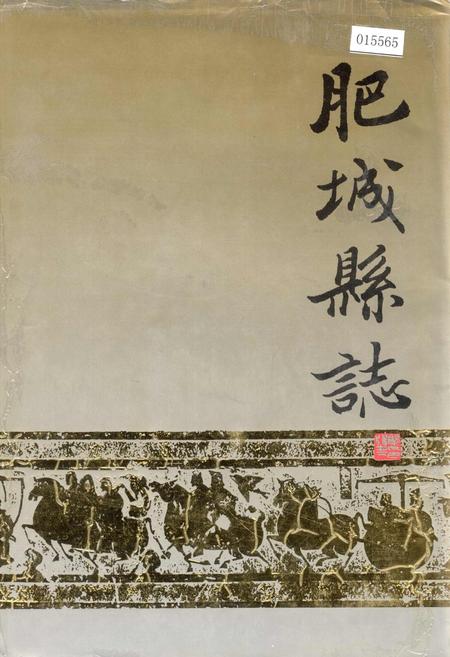 015565
肥城縣誌